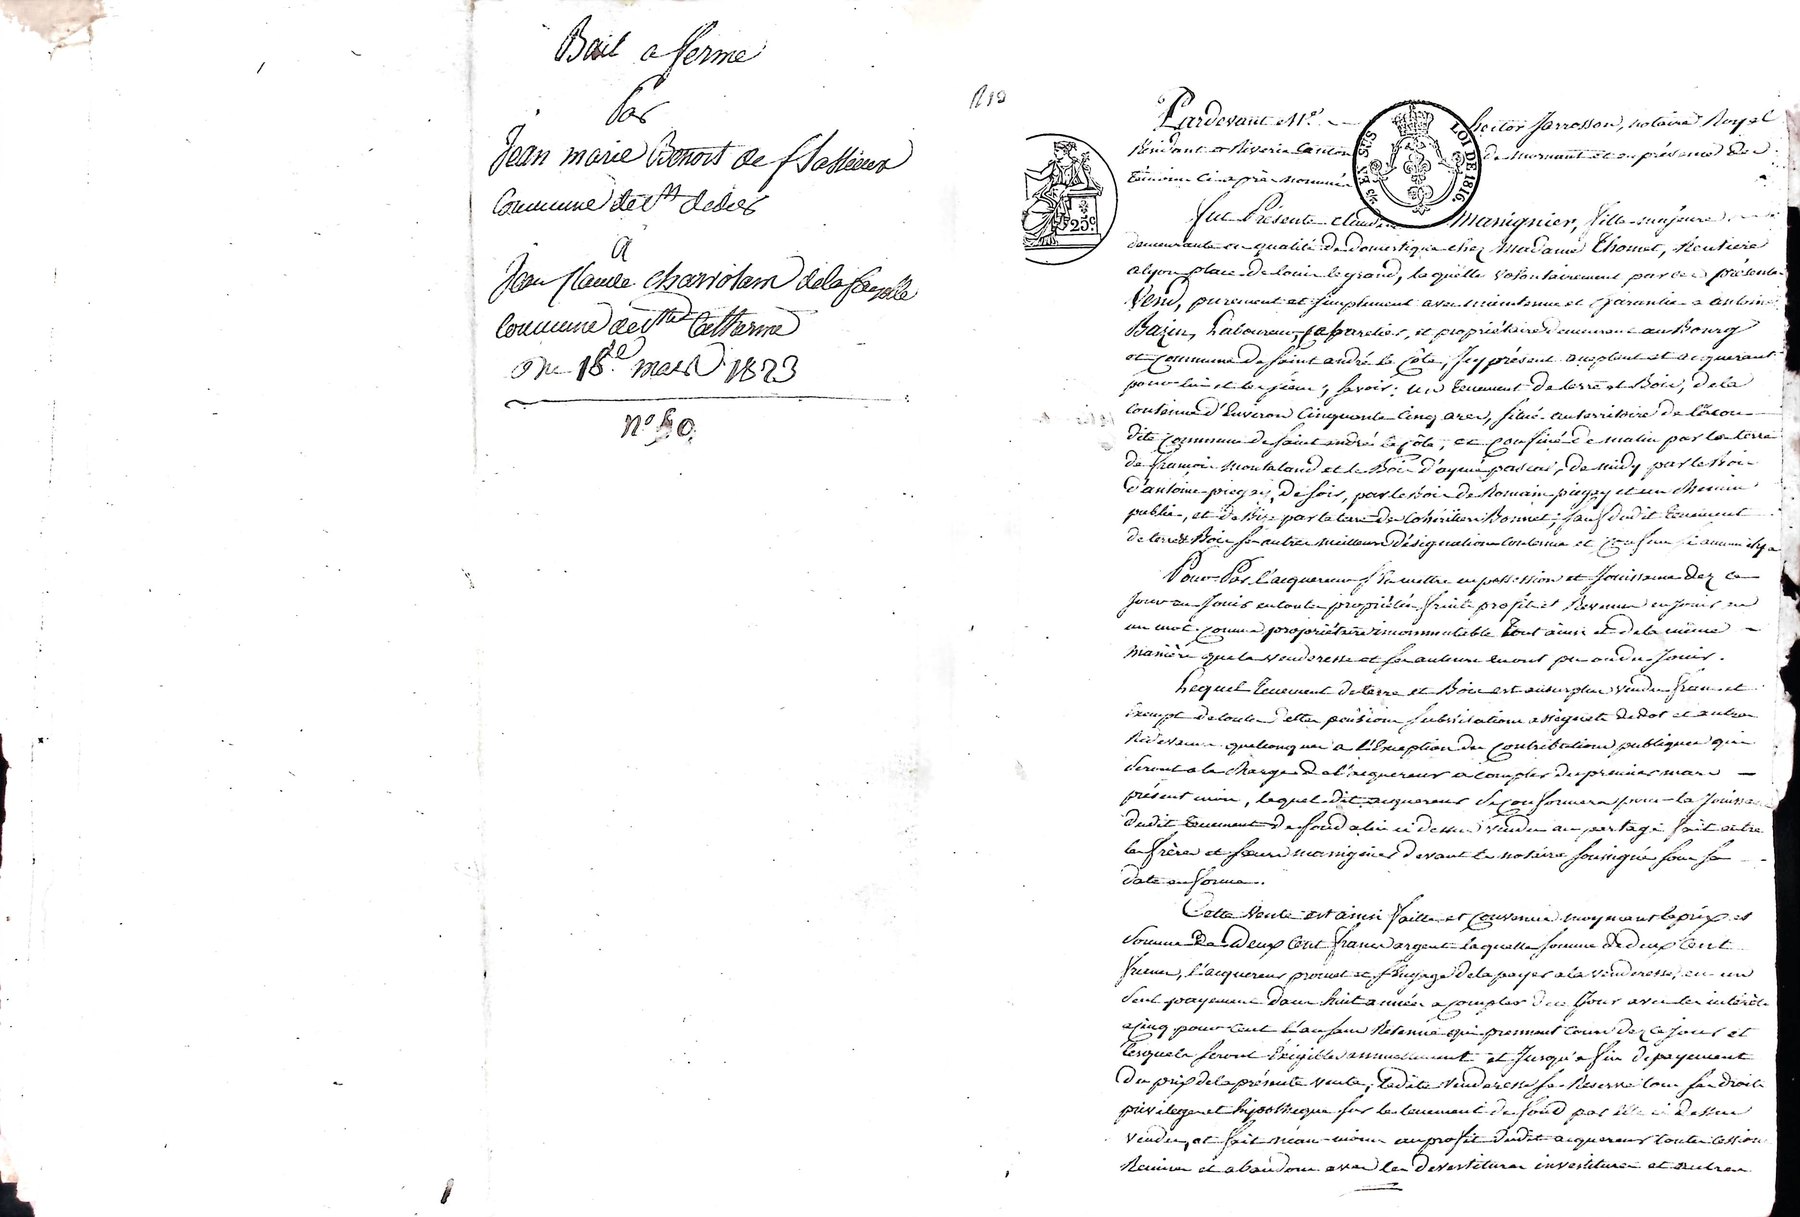 Bail a ferme
Par
Jean marie Benoit de
Commune de St didier
A
Jean Claude charvolain de la fayolle
Commune de Ste Catherine
Du 18e mars 1823
n° 50
n 10
Pardevant Me hector Jarrosson, notaire Royal
Résidant a Riverie Canton de mornant et en présence des
témoins ci après nommés
25 EN SUS
LOI DE 1816.
25c.
Fut Présente claudine manignier, fille majeure
demeurante en qualité de domestique chez madame thomet, Rentière
a lyon place de louis le grand, la quelle volontairement par ces présentes
Vend, purement et simplement avec maintenue et garantie a antoine
Bazin, Laboureur, et propriétaire demeurant au Bourg
et commune de saint andré la côte, Icy présent acceptant et acquerant
pour lui et les siens, savoir: un tenement de terre et Bois, de la
contenue d'Environ Cinquante Cinq ares, situé au territoire de
dite commune de saint andré la côte, et confiné de matin par la terre
de françois montaland et le Bois d'aymé pascal, de midy par le Bois
d'antoine piegay, de soir, par le Bois de Romain piegay et un chemin
public, et de Bize par la terre des cohéritiers Bonnet; sauf dudit tenement
de terre et Bois ses autres meilleurs désignations contenue et confins si aucuns il y a
Pour Par l'acquereur s'en mettre en possession et Jouissance dez ce
jour en Jouir en toute propriétée, fruits profits et Revenus en Jouir en
un mot comme propriétaire incommutable tout ainsi et de la même
manière que la venderesse et ses auteurs en ont pu ou du Jouir.
Lequel tenement de terre et Bois est au surplus vendu franc et
Exempt de toutes dettes pensions hubstitutions assignats de dot et autres
Redevances quelconques a l'Exception des contributions publiques qui
seront a la charge de l'acquereur a compter du premier mars
présent mois, lequel dit acquereur se conformera pour la Jouissance
dudit tenement de fond a lui ci dessus vendu au partage fait entre
les frères et soeurs manignier devant le notaire soussigné sous sa
date en forme.
Cette vente est ainsi faitte et convenue moyennant le prix et
somme de Deux Cent francs argent laquelle somme de deux Cent
francs, l'acquereur promet et s'engage de la payer a la venderesse, en un
seul payement dans huit années a compter de ce Jour avec les intérêts
a cinq pour cent l'an sans Retenue qui prennent cours dez ce jour et
lesquels seront Exigibles annuellement et Jusqu'a fin de payement
du prix de la présente vente, ladite venderesse se Reserve tous ses droits
privilege et hypotheque sur le tenement de fond par elle ci dessus
vendu, et fait néan-moins au profit dudit acquereur toutes cessions
Remises et abandons avec les devestitures investitures et autres